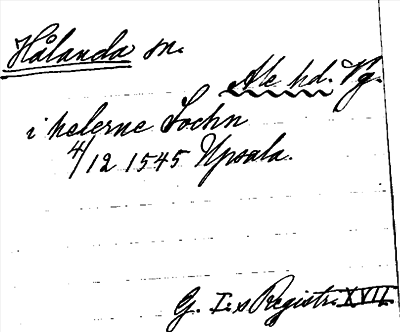 Hålanda sn.
Ale hd. Vg.
i helerne Sochn
4/12 1545 Upsala.
G. I:s Registr. XVII